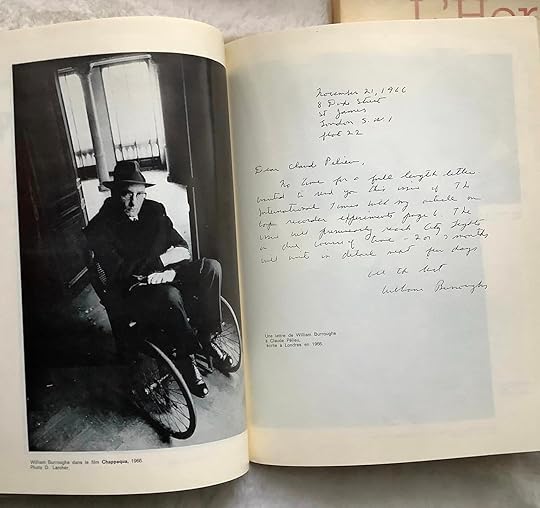 L'Her
November 21, 1966
8 Duke Street
St James
London S.W.1
flat 22
Dear Claude Pelieu,
No time for a full length letter
wanted to send you this issue of The
International Times with my article on
tape recorder experiments page 6. The
issue will presumably reach City Lights
in due course of time - 2 or 3 months
will write in detail next few days
All the best
William Burroughs
Une lettre de William Burroughs
à Claude Pélieu,
écrite à Londres en 1966.
William Burroughs dans le film Chappaqua, 1966.
Photo D. Larcher.